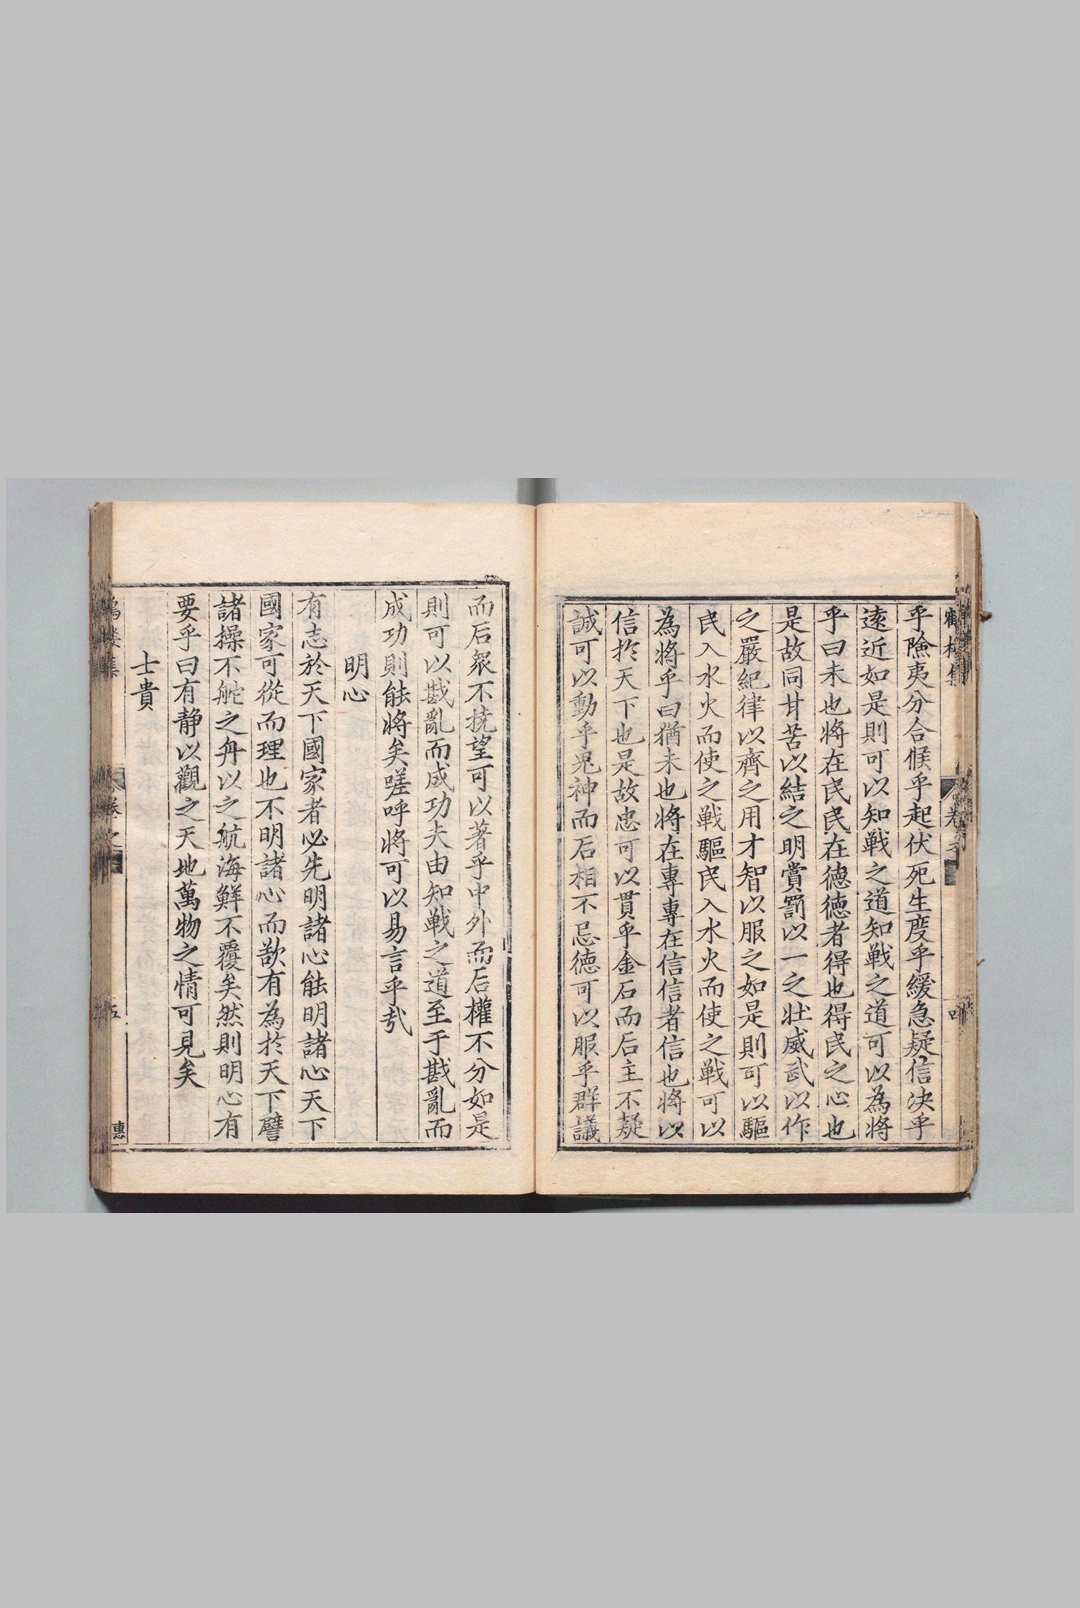 乎險夷分合候乎起伏死生度乎緩急疑信决乎
遠近如是則可以知戰之道知戰之道可以為將
乎曰未也將在民民在德德者得也得民之心也
是故同甘苦以結之明賞罰以一之壯威武以作
之嚴紀律以齊之用才智以服之如是則可以驅
民入水火而使之戰驅民入水火而使之戰可以
為將乎曰猶未也將在專專在信信者信也將以
信扵天下也是故忠可以貫乎金石而后主不疑
誠可以動乎鬼神而后相不忌德可以服乎群議
而后衆不撓望可以著乎中外而后權不分如是
則可以戡亂而成功夫由知戰之道至于戡亂而
成功則能將矣嗟呼將可以易言乎㢤
明心
有志於天下國家者必先明諸心能明諸心天下
國家可從而理也不明諸心而欲有為扵天下譬
諸操不舵之舟以之航海鮮不覆矣然則明心有
要乎曰有静以觀之天地萬物之情可見矣
士貴
五
惠